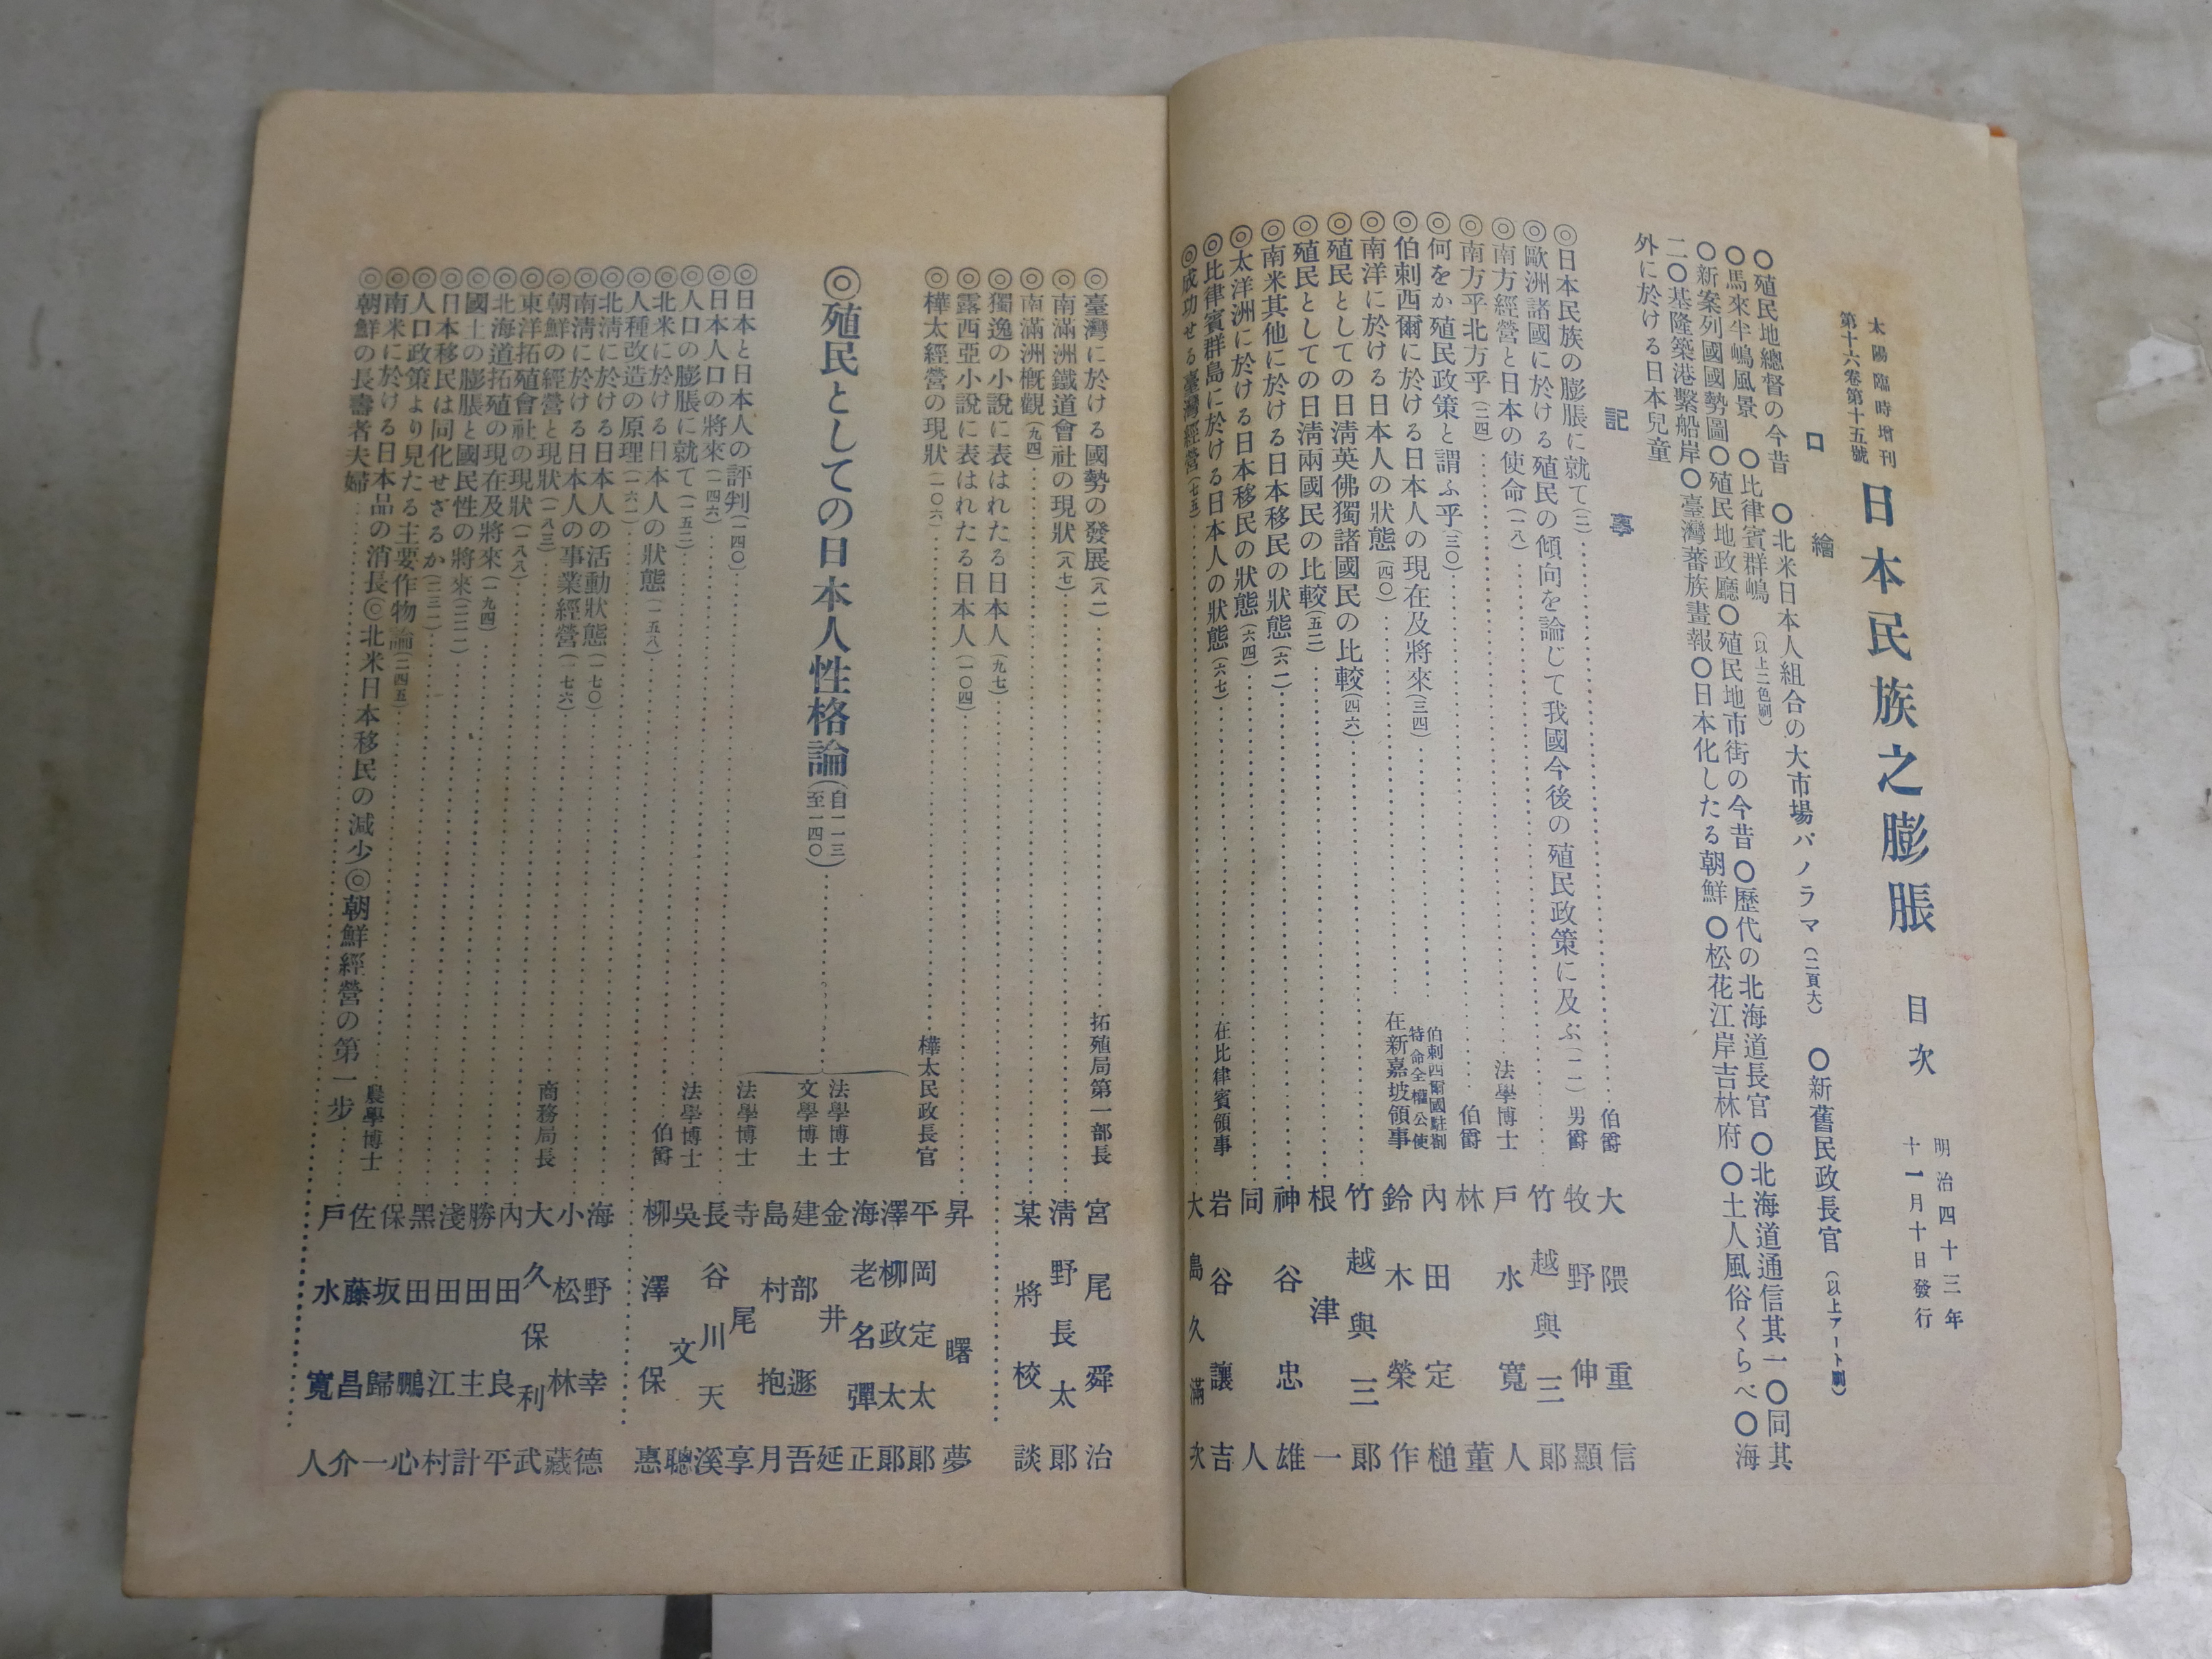 太陽臨時增刊
第十六卷第十五號
日本民族之膨脹 目次
明治四十三年
十一月十日發行
口繪
〇北米日本人組合の大市場パノラマ(二頁大) 〇新舊民政長官(以上アート刷)
〇殖民地總督の今昔 〇比律賓群嶋(以上二色刷)
〇馬來半嶋風景 〇殖民地市街の今昔 〇歷代の北海道長官 〇北海道通信其一〇同其
〇新案列國國勢圖〇殖民地政廳〇
二〇基隆築港繫船岸〇臺灣蕃族畫報〇日本化したる朝鮮 〇松花江岸吉林府 〇土人風俗くらべ〇海
外に於ける日本兒童
記事
◎日本民族の膨脹に就て(二) 伯爵 大隈重信
◎歐洲諸國に於ける殖民の傾向を論じて我國今後の殖民政策に及ぶ(一一) 男爵 牧野伸顯
◎南方經營と日本の使命(一八) 竹越與三郞
◎南方乎北方乎(二四) 法學博士 戶水寬人
◎何をか殖民政策と謂ふ乎(三〇) 伯爵 林董
◎伯剌西爾に於ける日本人の現在及將來(三四) 伯剌西爾國駐劄特命全權公使 內田定槌
◎南洋に於ける日本人の狀態(四〇) 在新嘉坡領事 鈴木榮作
◎殖民としての日淸英佛獨諸國民の比較(四六) 竹越與三郞
◎殖民としての日淸兩國民の比較(五二) 根津一
◎南米其他に於ける日本移民の狀態(六二) 神谷忠雄
◎太洋洲に於ける日本移民の狀態(六四) 同人
◎比律賓群島に於ける日本人の狀態(六七) 在比律賓領事 岩谷讓吉
◎成功せる臺灣經營(七五) 大島久滿次
◎臺灣に於ける國勢の發展(八二) 拓殖局第一部長 宮尾舜治
◎南滿洲鐵道會社の現狀(八七) 淸野長太郞
◎南滿洲槪觀(九四) 某將校談
◎獨逸の小說に表はれたる日本人(九七)
◎露西亞小說に表はれたる日本人(一〇四) 昇曙夢
◎樺太經營の現狀(一〇六) 樺太民政長官 平岡定太郞
◎殖民としての日本人性格論(自一一三至一四〇)
澤柳政太郞
海老名彈正
法學博士 金井延
文學博士 建部遯吾
島村抱月
◎日本と日本人の評判(一四〇) 法學博士 寺尾享
◎日本人口の將來(一四六) 長谷川天溪
◎人口の膨脹に就て(一五二) 法學博士 吳文聰
◎北米に於ける日本人の狀態(一五八) 伯爵 柳澤保惠
◎人種改造の原理(一六二)
◎北淸に於ける日本人の活動狀態(一七〇) 海野幸德
◎南淸に於ける日本人の事業經營(一七六) 小松林藏
◎朝鮮の經營と現狀(一八三) 商務局長 大久保利武
◎東洋拓殖會社の現狀(一八八) 內田良平
◎北海道拓殖の現在及將來(一九四) 勝田主計
◎國土の膨脹と國民性の將來(二二一) 淺田江村
◎日本移民は同化せざるか(二三二) 黑田鵬心
◎人口政策より見たる主要作物論(二四五) 保坂歸一
◎南米に於ける日本品の消長◎北米日本移民の減少◎朝鮮經營の第一步 農學博士 佐藤昌介
◎朝鮮の長壽者夫婦 戶水寬人